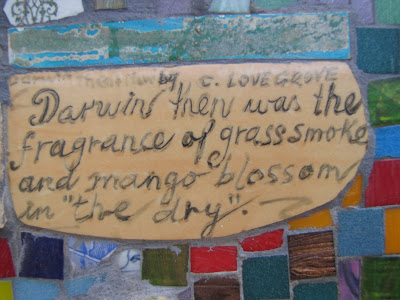 by C. LOVEGROVE
Darwin then was the
fragrance of grass smoke
and mango blossom
in "the dry".